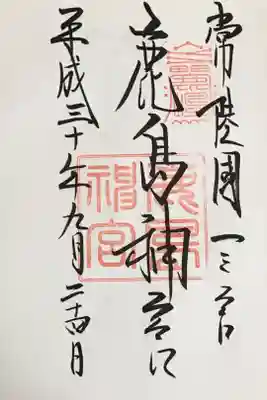 常陸国一之宮
鹿島神宮
平成三十年九月二十四日
鹿島神宮